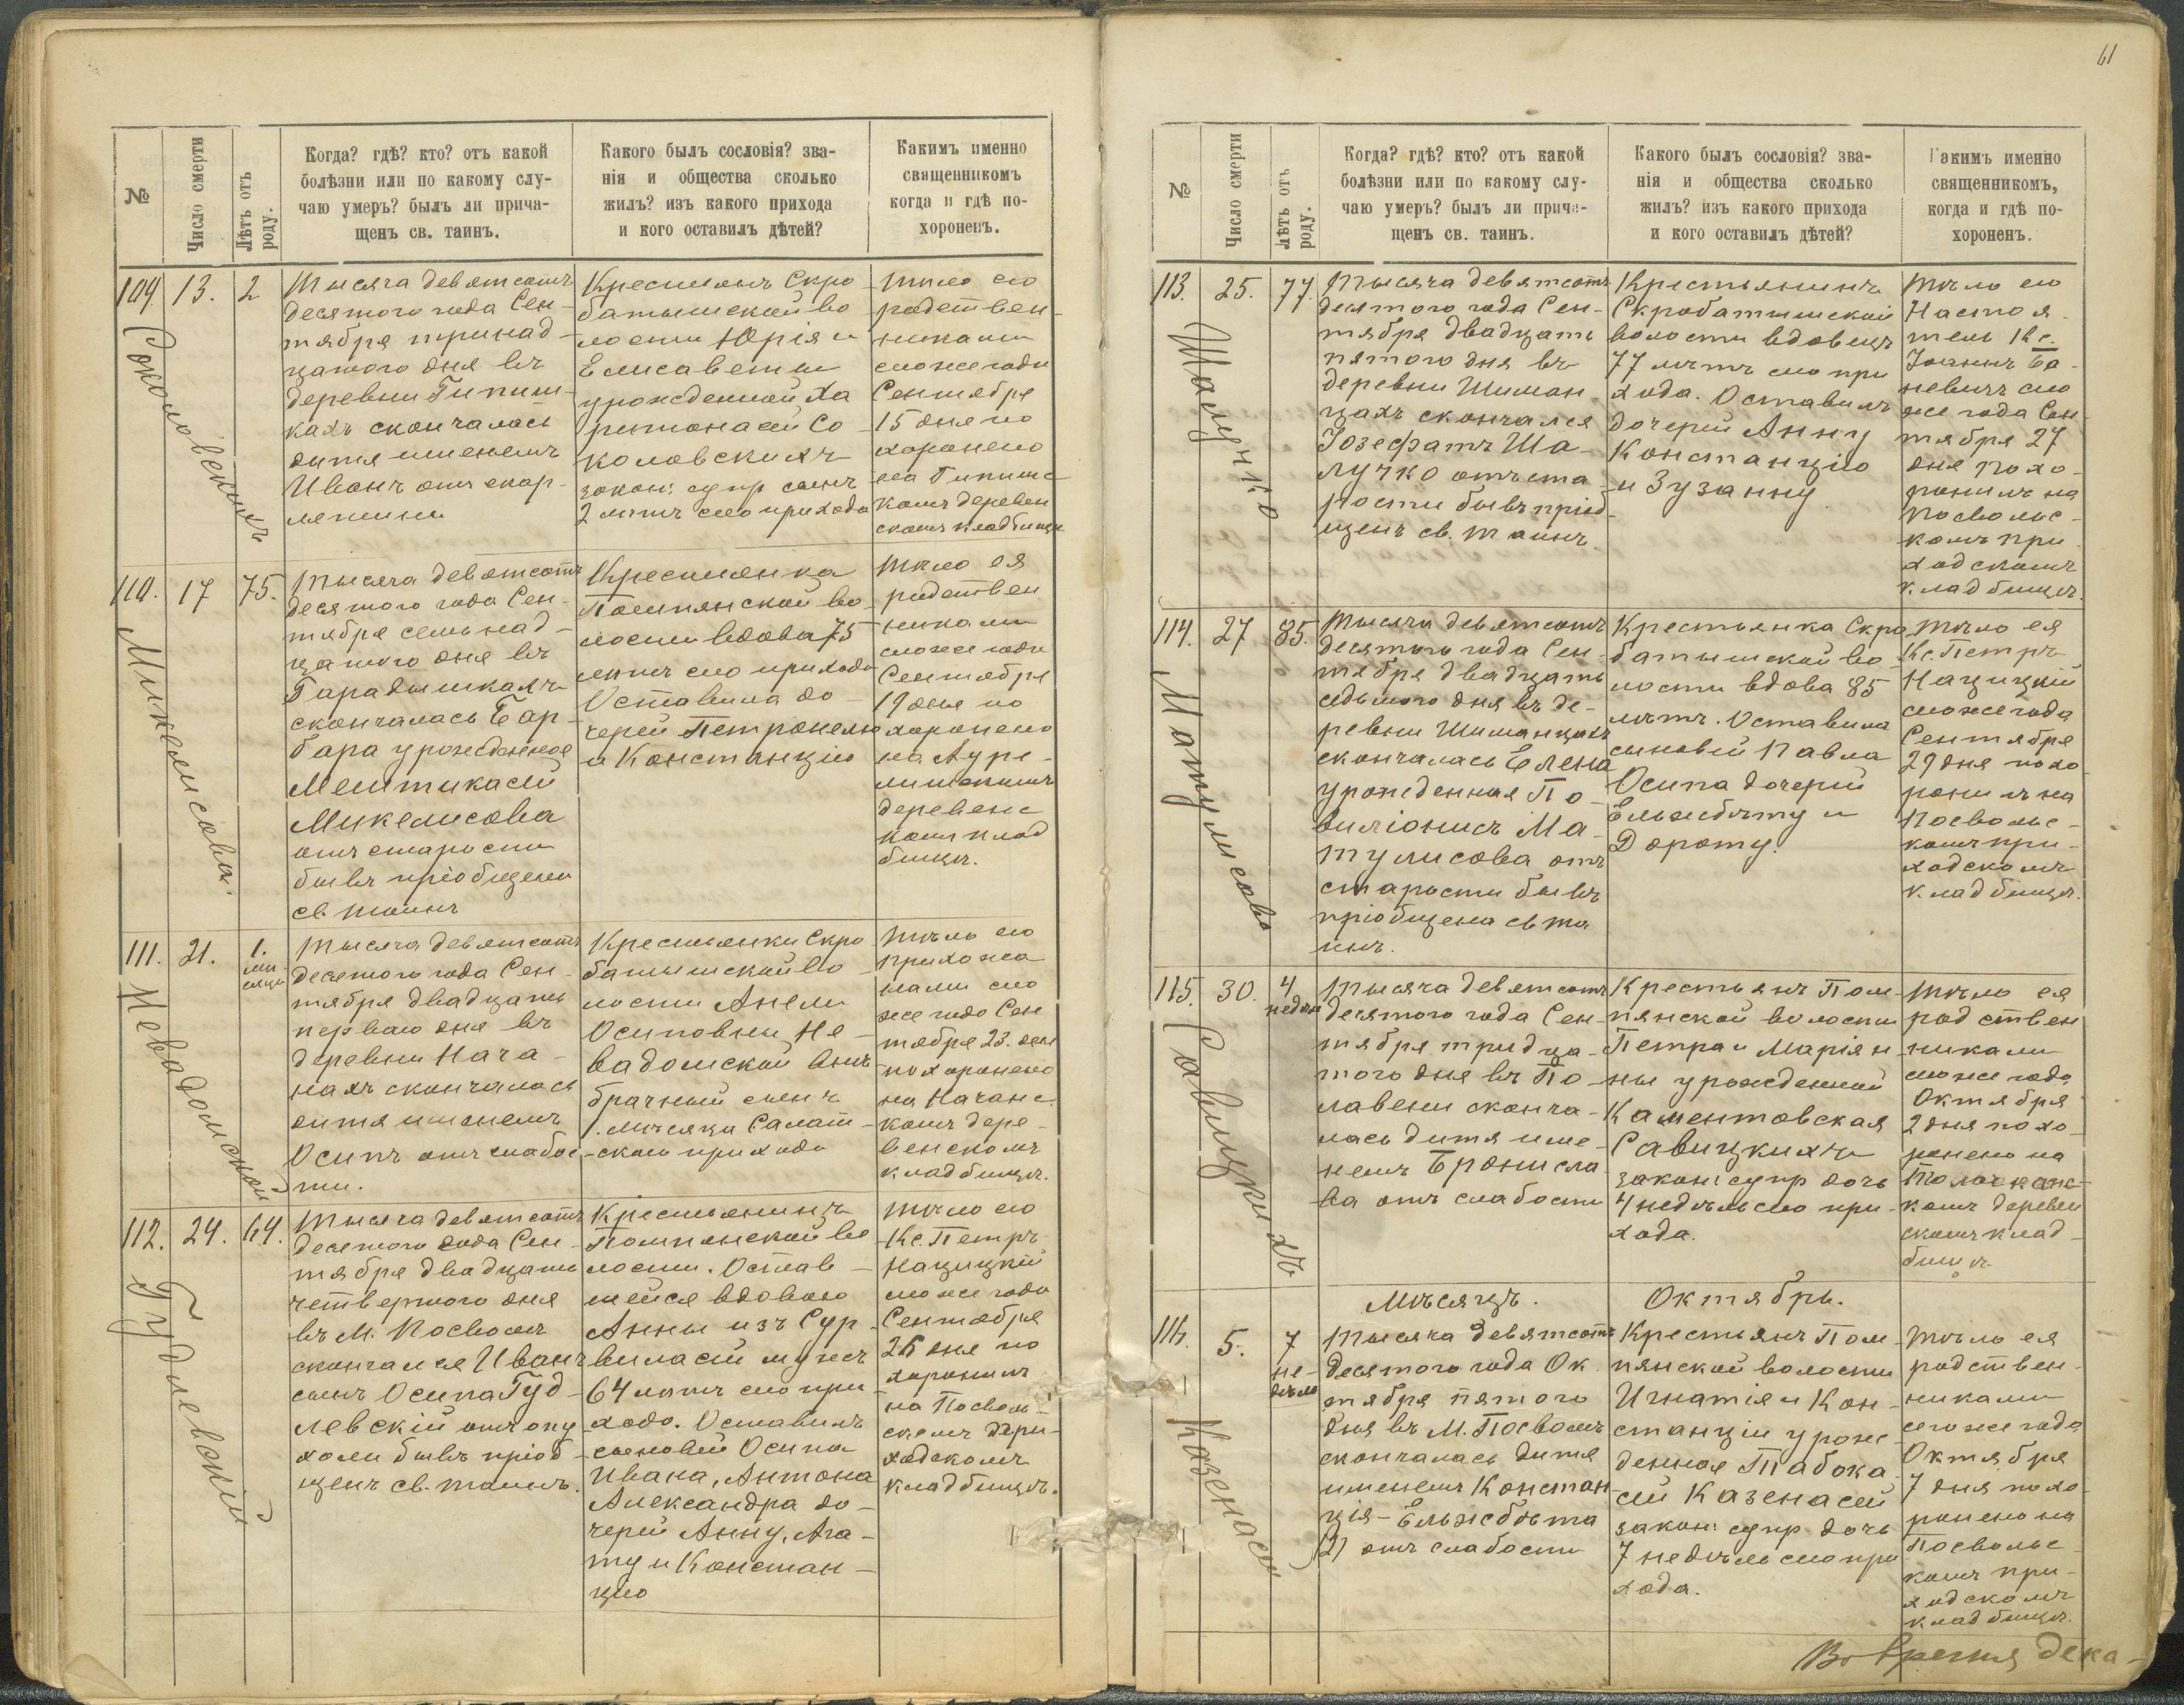 №
Число смерти
Лѣтъ отъ
роду.
Когда? гдѣ? кто? отъ какой
болѣзни или по какому слу-
чаю умеръ? былъ ли прича-
щенъ св. таинъ.
Какого былъ сословія? зва-
нія и общества сколько
жилъ? изъ какого прихода
и кого оставилъ дѣтей?
Какимъ именно
священникомъ
когда и гдѣ по-
хороненъ.
109
13.
2
Соколовскихъ
Тысяча девятсотъ
десятого года Сен-
тября тринад-
цатого дня въ
деревни Гипиш-
кахъ скончалась
дитя именемъ
Иванъ отъ скар-
летины
Крестьянъ Скро
батышской во
лости Юрія и
Елисаветы
урожденной Ха
ритонасей Со
коловскихъ
закон: супр сынъ
2 лѣтъ сего прихода
Тѣло его
родствен-
никами
сего же года
Сентября
15 дня по
хоронено
на Гипишс
комъ деревен
скомъ кладбищѣ
110.
17
75.
Микелисова.
Тысяча девятсотъ
десятого года Сен-
тября семьнад-
цатого дня въ
Гарадышкахъ
скончалась Бар-
бара урожденная
Мештикасей
Микелисова
отъ старости
бывъ пріобщена
св. таинъ
Крестьянка
Помпянской во-
лости вдова 75
лѣтъ сего прихода
Оставила до-
черей Петронелю
и Констанцію
Тѣло ея
родствен
никами
сего же года
Сентября
19 дня по
хоронено
деревенс
комъ клад
бищѣ.
111.
21.
1.
мѣ-
сяцъ
Невадомской
Тысяча девятсотъ
десятого года Сен-
тября двадцать
первого дня въ
деревни Нача-
нахъ скончалась
дитя именемъ
Осипъ отъ слабос-
ти.
Крестьянки Скро
батышской во-
лости Анели
Осиповны Не-
вадомской внѣ
брачный сынъ
1. мѣсяца Салат-
скаго прихода
Тѣло его
прихожа
нами сего
же года Сен
тября 23. дня
похоронено
на Начанс
комъ дере-
венскомъ
кладбищѣ.
112.
24.
64.
Гудлевскій
Тысяча девятсотъ
десятого года Сен-
тября двадцать
четвертого дня
въ М. Посволѣ
скончался Иванъ
сынъ Осипа Гуд-
левскій отъ опу
холи бывъ пріоб-
щенъ св. таинъ.
Крестьянинъ
Помпянской во
лости. Остав-
шейся вдовою
Анны изъ Сур-
виласей мужъ
64 лѣтъ сего при
хода. Оставилъ
сыновей Осипа
Ивана, Антона
Александра до-
черей Анну, Ага-
ту и Констан-
цію
Тѣло его
Кс. Петръ
Нацицкій
сего же года
Сентября
26 дня по
хоронилъ
на Посволь-
скомъ при-
ходскомъ
кладбищѣ.
61
№
Число смерти
Лѣтъ отъ
роду.
Когда? гдѣ? кто? отъ какой
болѣзни или по какому слу-
чаю умеръ? былъ ли прича-
щенъ св. таинъ.
Какого былъ сословія? зва-
нія и общества сколько
жилъ? изъ какого прихода
и кого оставилъ дѣтей?
Какимъ именно
священникомъ,
когда и гдѣ по-
хороненъ.
113.
25.
77.
Шалучко
Тысяча девятсотъ
десятого года Сен-
тября двадцать
пятого дня въ
деревни Шиман-
цахъ скончался
Іозефатъ Ша-
лучко отъ ста-
рости бывъ пріоб-
щенъ св. таинъ.
Крестьянинъ
Скробатышской
волости вдовецъ
77 лѣтъ сего при
хода. Оставилъ
дочерей Анну
Констанцію
и Зузанну
Тѣло его
Настоя-
тель Кс.
Іоаннъ Ба-
невичъ сего
же года Сен
тября 27
дня похо-
ронилъ на
Посвольс-
комъ при
ходскомъ
кладбищѣ.
114.
27
85.
Матулисова
Тысяча девятсотъ
десятого года Сен-
тября двадцать
седьмого дня въ де-
ревни Шиманцахъ
скончалась Елена
урожденная По-
виліонисъ Ма-
тулисова отъ
старости бывъ
пріобщена св та
инъ.
Крестьянка Скро
батышской во-
лости вдова 85
лѣтъ. Оставила
сыновей Павла
Осипа дочерей
Ельжбѣту и
Дороту.
Тѣло ея
Кс. Петръ
Нацицкій
сего же года
Сентября
29 дня похо
ронилъ на
Посвольс-
комъ при-
ходскомъ
кладбищѣ.
115.
30.
4
недѣли
Савицкихъ
Тысяча девятсотъ
десятого года Сен-
тября тридца-
того дня въ По-
лавени сконча-
лась дитя име-
немъ Бронисла
ва отъ слабости
Крестьянъ Пом-
пянской волости
Петра и Маріян
ны урожденной
Каментовская
Савицкихъ
закон: супр дочь
4 недѣль сего при-
хода.
Тѣло ея
родствен
никами
сего же года
Октября
2 дня похо-
ронено на
комъ деревен
скомъ клад-
бищѣ.
Мѣсяцъ. Октябрь.
116.
5.
7
не-
дѣль
Казенасей
Тысяча девятсотъ
десятого года Ок-
тября пятого
дня въ М. Посволѣ
скончалась дитя
именемъ Констан
ція-Ельжбѣта
2) отъ слабости
Крестьянъ Пом-
пянской волости
Игнатія и Кон-
станціи урож-
денная Табока
сей Казенасей
закон: супр дочь
7 недѣль сего при
хода.
Тѣло ея
родствен-
никами
сего же года
Октября
7 дня похо-
ронено на
Посвольс-
комъ при-
ходскомъ
кладбищѣ.
Во время дека-